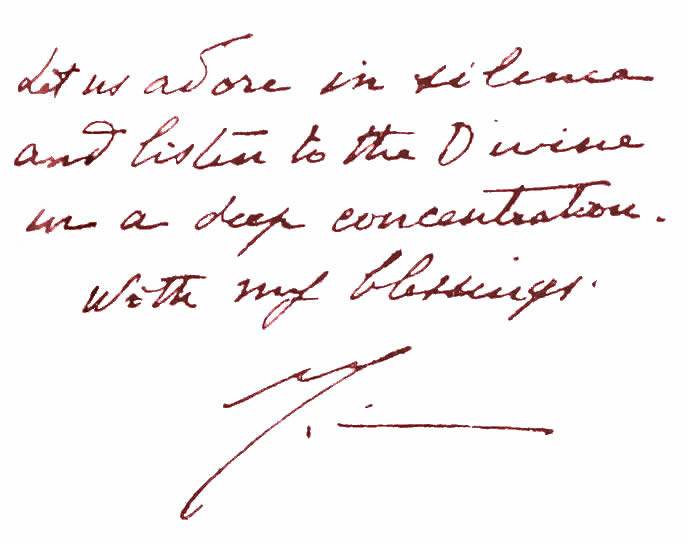 Let us adore in silence
and listen to the Divine
in a deep concentration.
With my blessings.